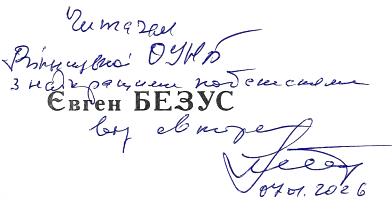 Читачам
Вінницької ОУНБ
з найкращими побажаннями
Євген БЕЗУС
від автора
07.01.2026